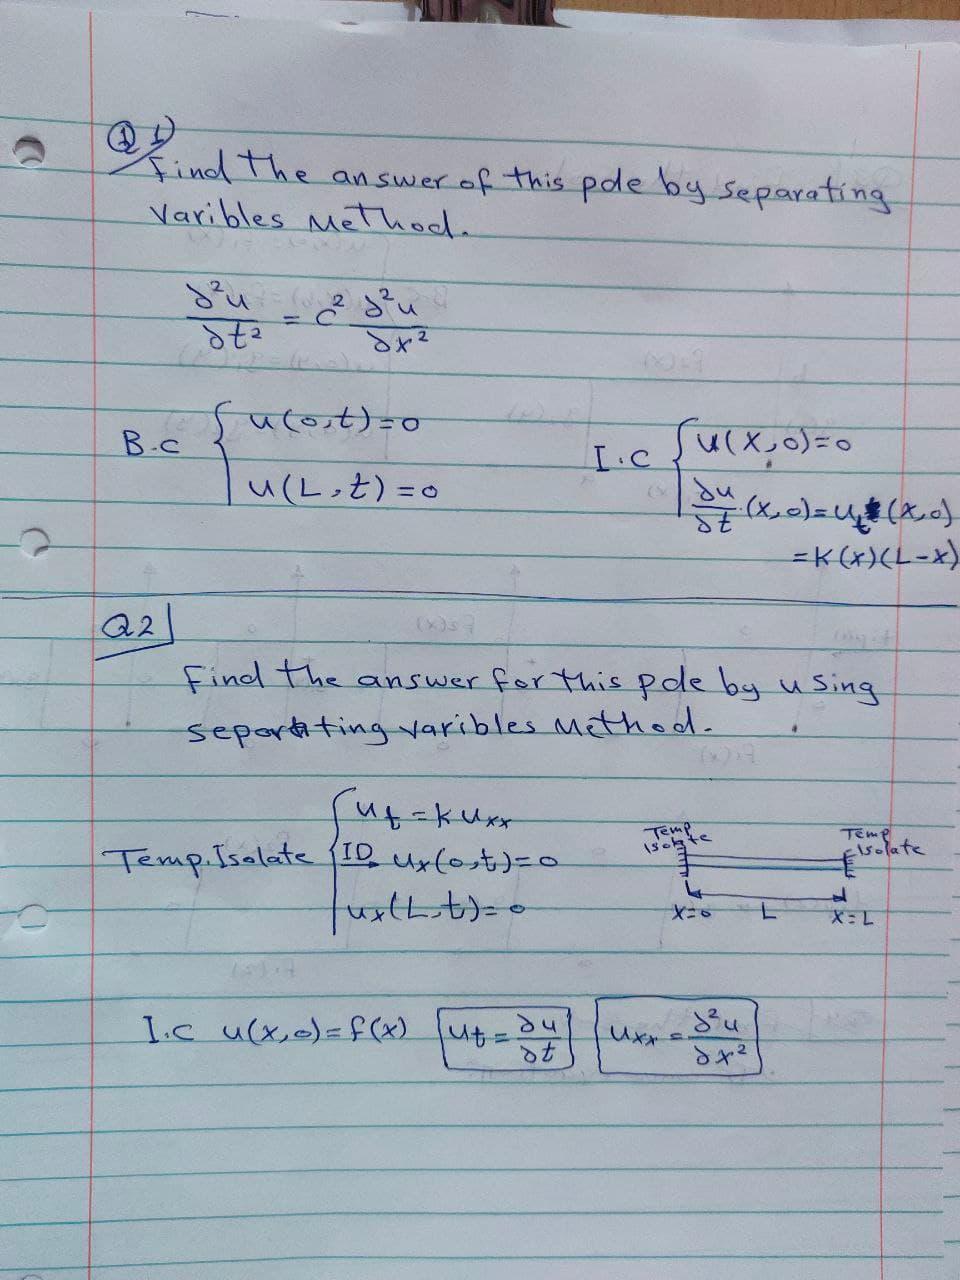 Q1)
Find the answer of this pde by separating
varibles method.
∂²u/∂t² = c² ∂²u/∂x²
B.c { u(0,t)=0
u(L,t)=0
I.C { u(x,0)=0
∂u/∂t (x,0)=uₜ(x,0)
=k(x)(L-x)
Q2
Find the answer for this pde by using
separating varibles method.
Temp. Isolate { uₜ=k uₓₓ
1D uₓ(0,t)=0
uₓ(L,t)=0
Temp Isolate
Temp Isolate
x=0 L x=L
I.C u(x,0)=f(x) uₜ=∂u/∂t uₓₓ=∂²u/∂x²